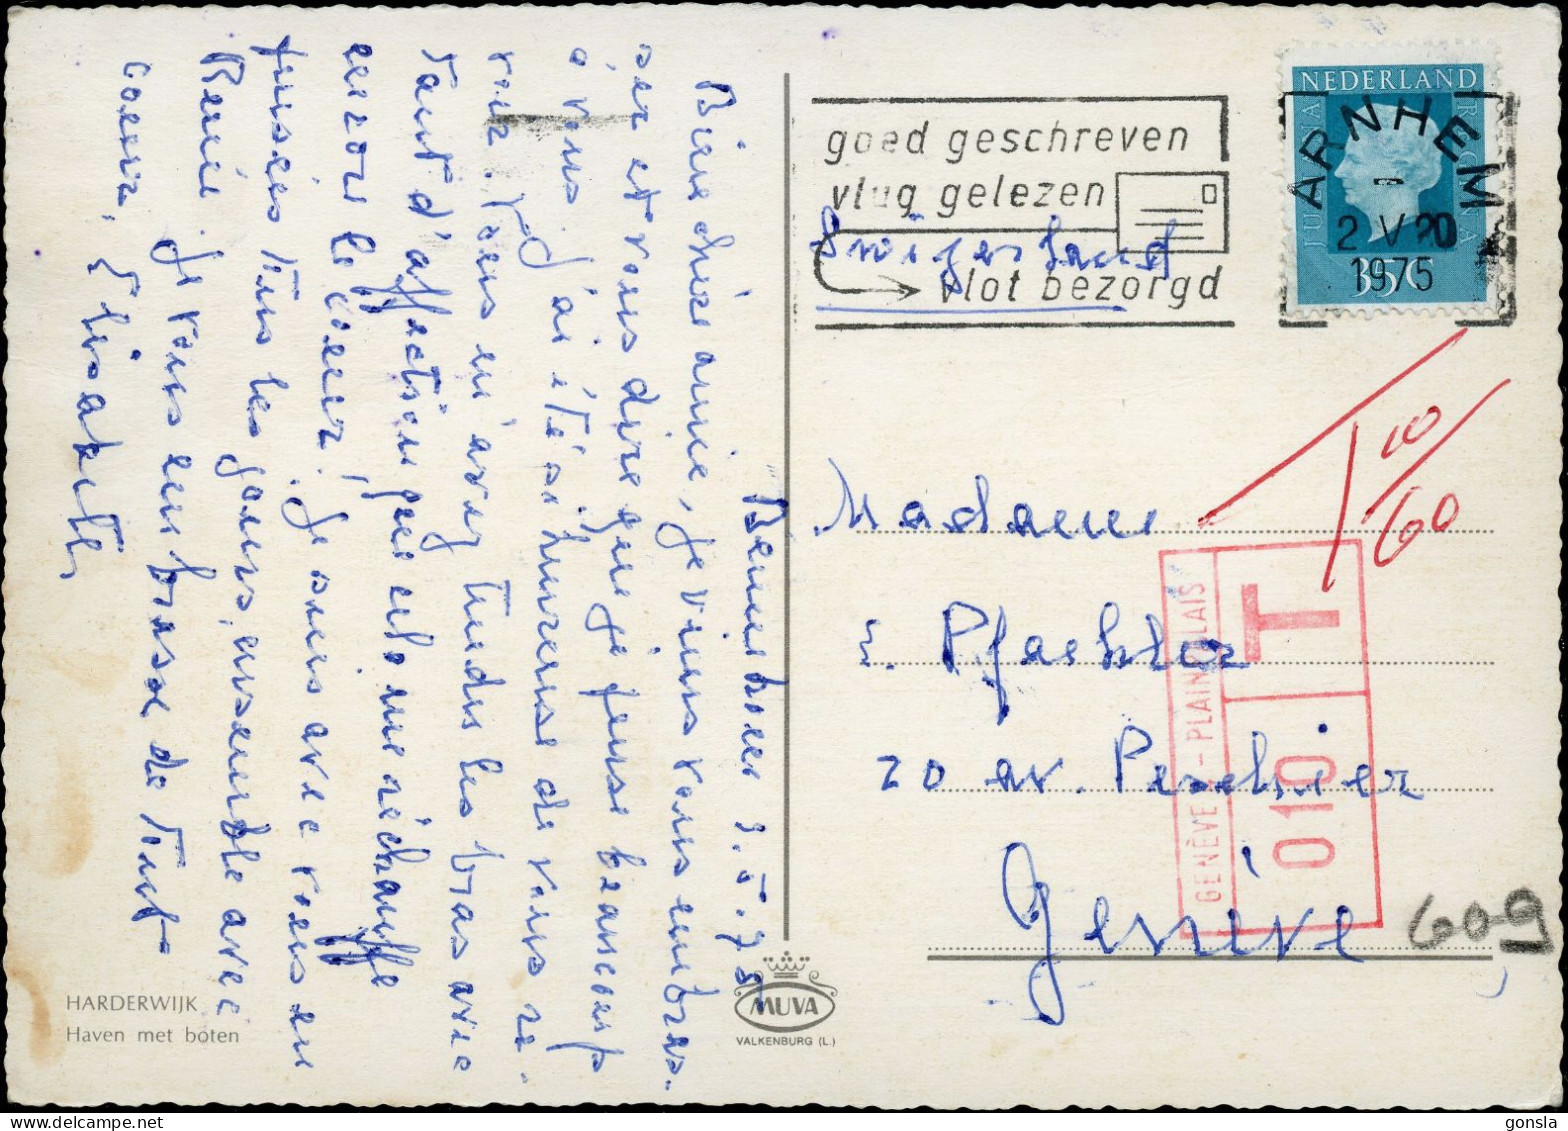 Bennekom 3.5.75
Bien chère amie, je viens vous embras-
ser et vous dire que je pense beaucoup
à vous. J'ai été si heureuse de vous re-
voir. Vous m'avez tendu les bras avec
tant d'affection que cela me réchauffe
encore le coeur! Je suis avec vous en
pensées tous les jours, ensemble avec
Renée. Je vous embrasse de tout
coeur, Elisabeth
HARDERWIJK
Haven met boten
MUVA
VALKENBURG (L.)
goed geschreven
vlug gelezen
vlot bezorgd
Zwitserland
NEDERLAND
JULIANA REGINA
35C
ARNHEM
2 V 20
1975
T 10/60
Madame
20 av. Peschier
Genève
GENÈVE - PLAINPALAIS
T
010
609
gonsla
delcampe.net